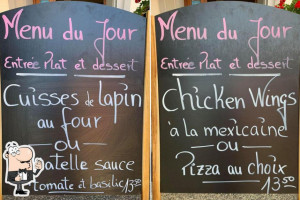 Menu du Jour
Entrée Plat et dessert
Cuisses de lapin
au four
ou
sauce
tomate à basilic 13.50
Menu du Jour
Entrée Plat et dessert
Chicken Wings
à la mexicaine
ou
Pizza au choix
13.50